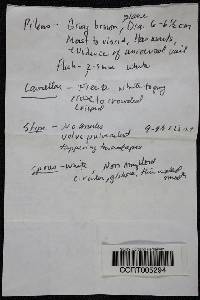 Pileus - Gray brown, plane Dia. 6-6½ cm
Moist to viscid, No
evidence of universal veil
Flesh - 2-3mm white
Lamellae - Free white to gray
close to crowded
Stipe - No annulus
volva pulverulent
tapering toward apex
Spores - white Non amyloid
thin walled
smooth
OCRT005294